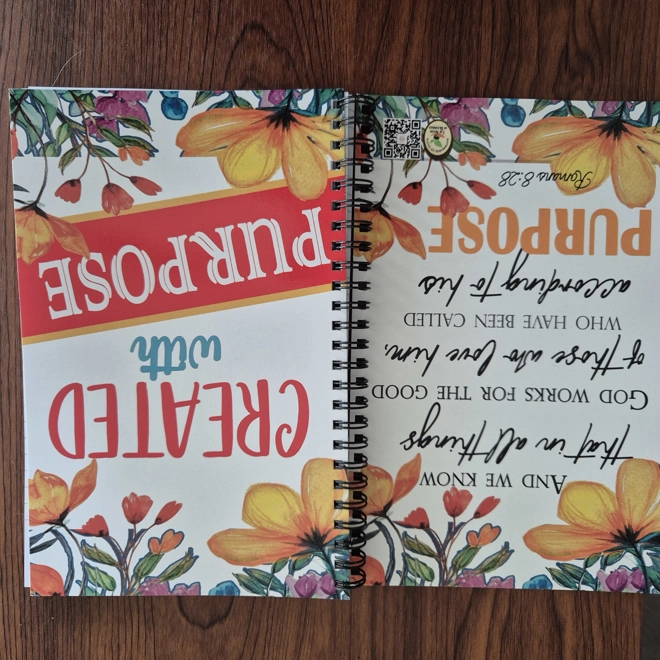 AND WE KNOW
that in all things
GOD WORKS FOR THE GOOD
of those who love him,
WHO HAVE BEEN CALLED
according to his
PURPOSE
Romans 8:28
CREATED
with
PURPOSE